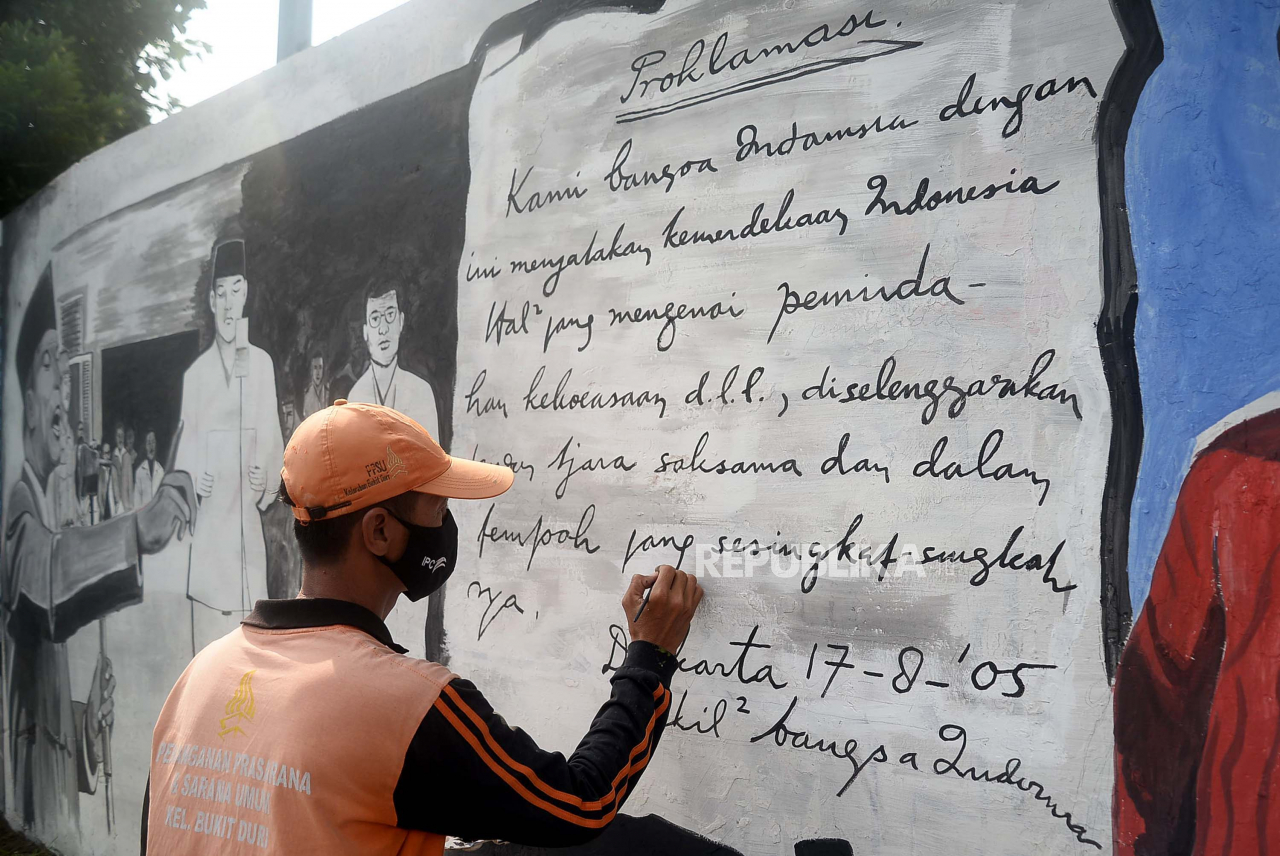 Proklamasi.
Kami bangsa Indonesia dengan
ini menjatakan kemerdekaan Indonesia
Hal² jang mengenai peminda-
han kekoeasaan d.l.l., diselenggarakan
tjara saksama dan dalam
tempoh jang sesingkat-singkat
nya.
17-8-'05
bangsa Indonesia
PPSU
Kelurahan Bukit Duri
IPC
PRASARANA
& SARANA UMUM
KEL. BUKIT DURI
REPUBLIKA